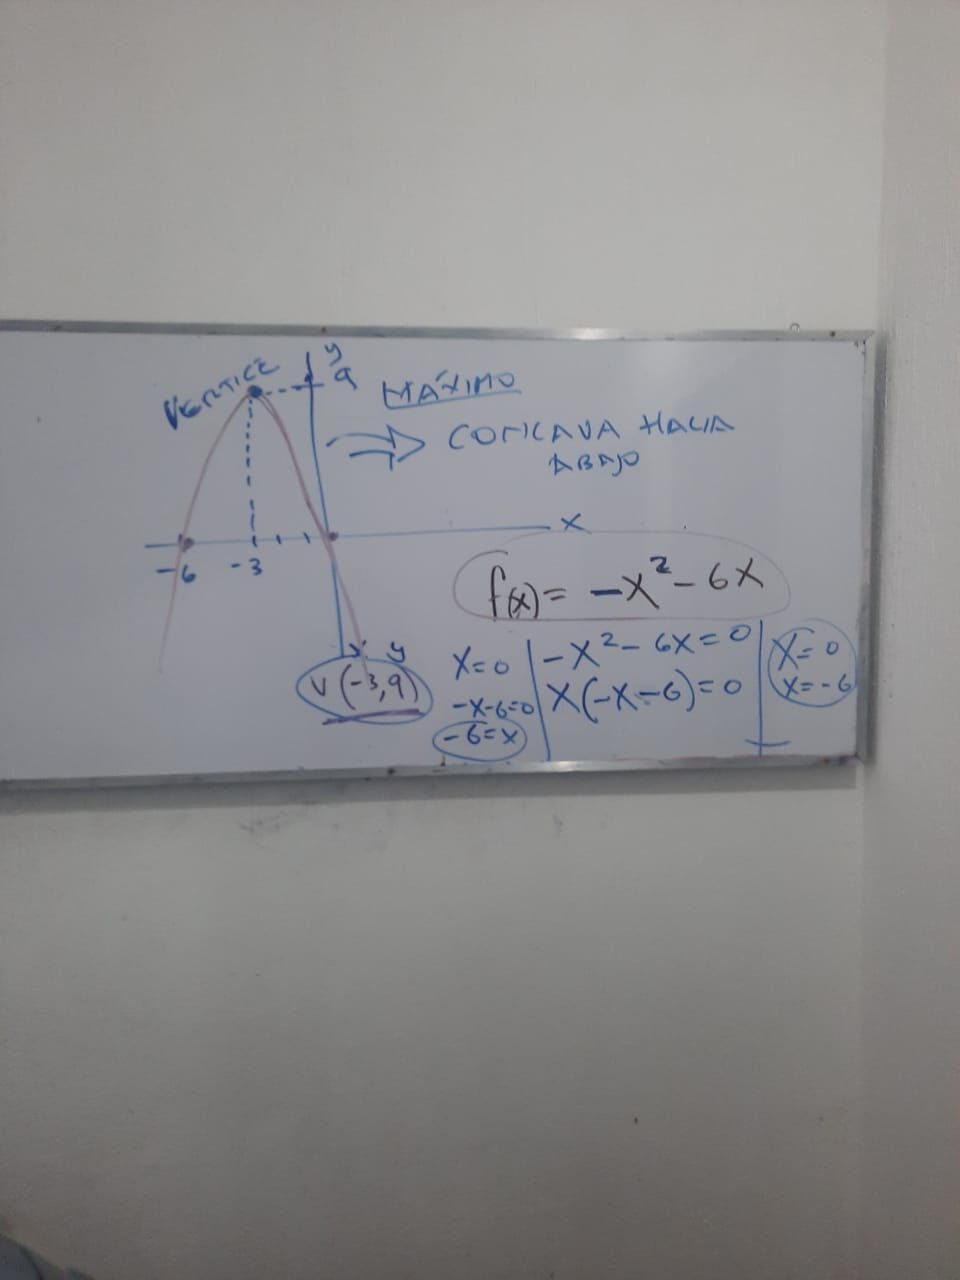 VERTICE
y
9
MÁXIMO
CONCAVA HACIA
ABAJO
x
-6
-3
f(x)= -x²-6x
x y
V (-3,9)
x=0
-x-6=0
-6=x
-x²-6x=0
x(-x-6)=0
x=0
x=-6